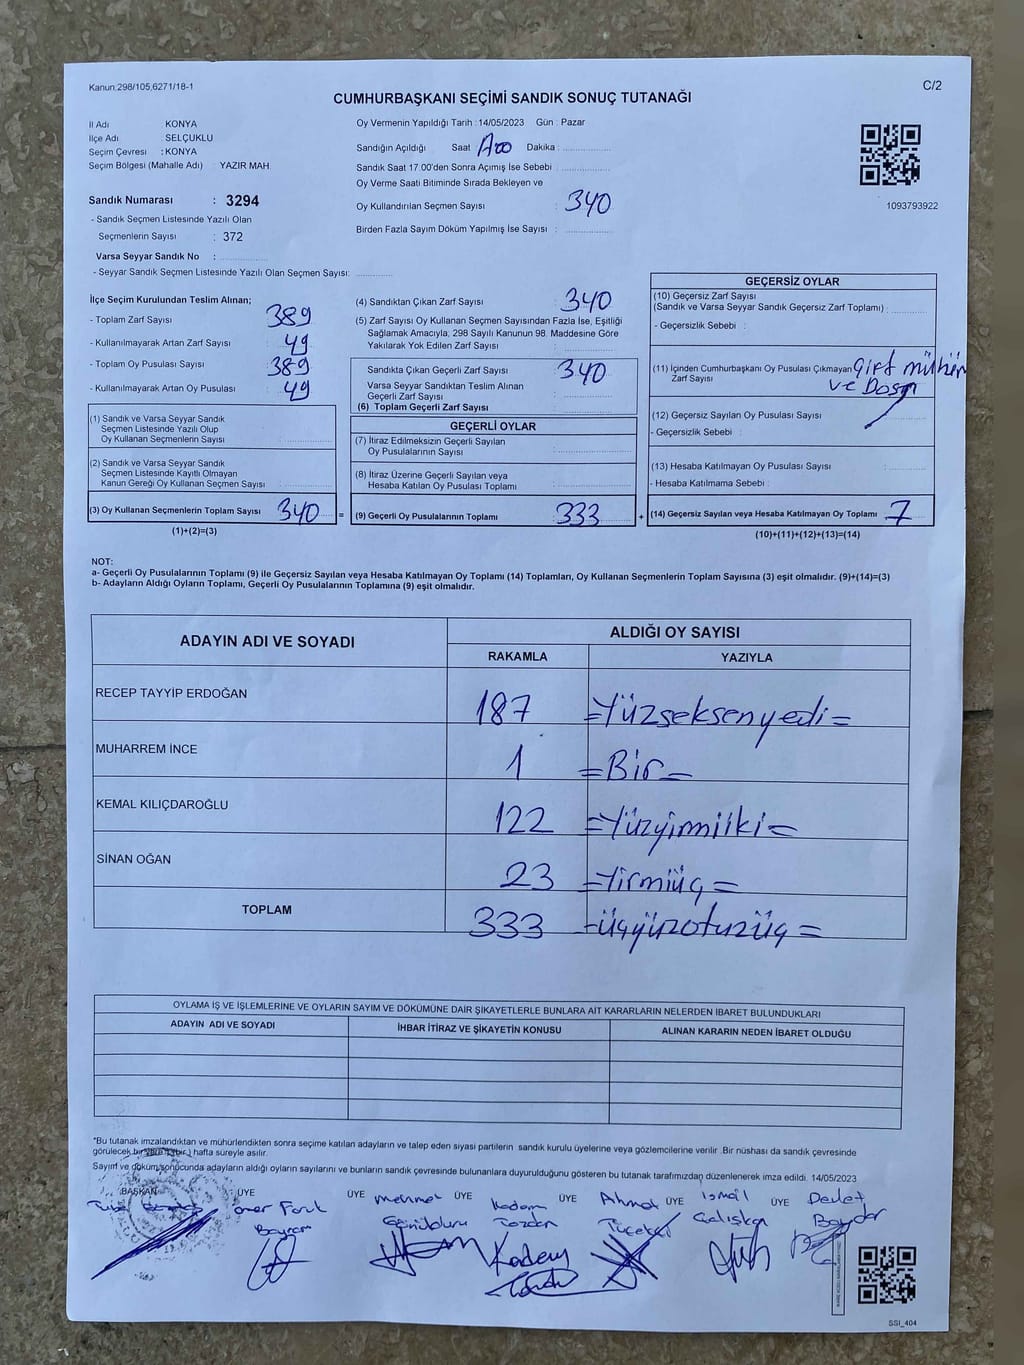 Kanun,298/105,6271/18-1
C/2
CUMHURBAŞKANI SEÇİMİ SANDIK SONUÇ TUTANAĞI
İl Adı KONYA
İlçe Adı : SELÇUKLU
Seçim Çevresi : KONYA
Seçim Bölgesi (Mahalle Adı) : YAZIR MAH.
Sandık Numarası : 3294
- Sandık Seçmen Listesinde Yazılı Olan
Seçmenlerin Sayısı : 372
Varsa Seyyar Sandık No :
- Seyyar Sandık Seçmen Listesinde Yazılı Olan Seçmen Sayısı:
Oy Vermenin Yapıldığı Tarih : 14/05/2023 Gün : Pazar
Sandığın Açıldığı Saat Dakika :
Sandık Saat 17.00'den Sonra Açımış İse Sebebi :
Oy Verme Saati Bitiminde Sırada Bekleyen ve
Oy Kullandırılan Seçmen Sayısı : 340
Birden Fazla Sayım Döküm Yapılmış İse Sayısı :
1093793922
İlçe Seçim Kurulundan Teslim Alınan;
- Toplam Zarf Sayısı 389
- Kullanılmayarak Artan Zarf Sayısı : 49
- Toplam Oy Pusulası Sayısı 389
- Kullanılmayarak Artan Oy Pusulası : 49
(1) Sandık ve Varsa Seyyar Sandık
Seçmen Listesinde Yazılı Olup
Oy Kullanan Seçmenlerin Sayısı :
(2) Sandık ve Varsa Seyyar Sandık
Seçmen Listesinde Kayıtlı Olmayan
Kanun Gereği Oy Kullanan Seçmen Sayısı :
(3) Oy Kullanan Seçmenlerin Toplam Sayısı 340 =
(1)+(2)=(3)
(4) Sandıktan Çıkan Zarf Sayısı : 340
(5) Zarf Sayısı Oy Kullanan Seçmen Sayısından Fazla İse, Eşitliği
Sağlamak Amacıyla; 298 Sayılı Kanunun 98. Maddesine Göre
Yakılarak Yok Edilen Zarf Sayısı :
Sandıkta Çıkan Geçerli Zarf Sayısı : 340
Varsa Seyyar Sandıktan Teslim Alınan
Geçerli Zarf Sayısı :
(6) Toplam Geçerli Zarf Sayısı
GEÇERLİ OYLAR
(7) İtiraz Edilmeksizin Geçerli Sayılan
Oy Pusulalarının Sayısı :
(8) İtiraz Üzerine Geçerli Sayılan veya
Hesaba Katılan Oy Pusulası Toplamı :
(9) Geçerli Oy Pusulalarının Toplamı : 333 +
GEÇERSİZ OYLAR
(10) Geçersiz Zarf Sayısı
(Sandık ve Varsa Seyyar Sandık Geçersiz Zarf Toplamı) :
- Geçersizlik Sebebi :
(11) İçinden Cumhurbaşkanı Oy Pusulası Çıkmayan Çift mühür
Zarf Sayısı ve
(12) Geçersiz Sayılan Oy Pusulası Sayısı :
- Geçersizlik Sebebi :
(13) Hesaba Katılmayan Oy Pusulası Sayısı :
- Hesaba Katılmama Sebebi :
(14) Geçersiz Sayılan veya Hesaba Katılmayan Oy Toplamı : 7
(10)+(11)+(12)+(13)=(14)
NOT:
a- Geçerli Oy Pusulalarının Toplamı (9) ile Geçersiz Sayılan veya Hesaba Katılmayan Oy Toplamı (14) Toplamları, Oy Kullanan Seçmenlerin Toplam Sayısına (3) eşit olmalıdır. (9)+(14)=(3)
b- Adayların Aldığı Oyların Toplamı, Geçerli Oy Pusulalarının Toplamına (9) eşit olmalıdır.
ADAYIN ADI VE SOYADI ALDIĞI OY SAYISI
RAKAMLA YAZIYLA
RECEP TAYYİP ERDOĞAN 187 =Yüzseksenyedi=
MUHARREM İNCE 1 =Bir=
KEMAL KILIÇDAROĞLU 122 =Yüzyirmiiki=
SİNAN OĞAN 23 =Yirmiüç=
TOPLAM 333 =üçyüzotuzüç=
OYLAMA İŞ VE İŞLEMLERİNE VE OYLARIN SAYIM VE DÖKÜMÜNE DAİR ŞİKAYETLERLE BUNLARA AİT KARARLARIN NELERDEN İBARET BULUNDUKLARI
ADAYIN ADI VE SOYADI İHBAR İTİRAZ VE ŞİKAYETİN KONUSU ALINAN KARARIN NEDEN İBARET OLDUĞU
*Bu tutanak imzalandıktan ve mühürlendikten sonra seçime katılan adayların ve talep eden siyasi partilerin sandık kurulu üyelerine veya gözlemcilerine verilir .Bir nüshası da sandık çevresinde
görülecek bir yere (bir) hafta süreyle asılır.
Sayım ve döküm sonucunda adayların aldığı oyların sayılarını ve bunların sandık çevresinde bulunanlara duyurulduğunu gösteren bu tutanak tarafımızdan düzenlenerek imza edildi. 14/05/2023
BAŞKAN ÜYE ÜYE ÜYE ÜYE ÜYE ÜYE
Ömer Faruk Mehmet Kadem Ahmet İsmail Devlet
Bayram Gönüldüru Tozan Tüceket Çalışkan Baydar
Kadem
SSI_404